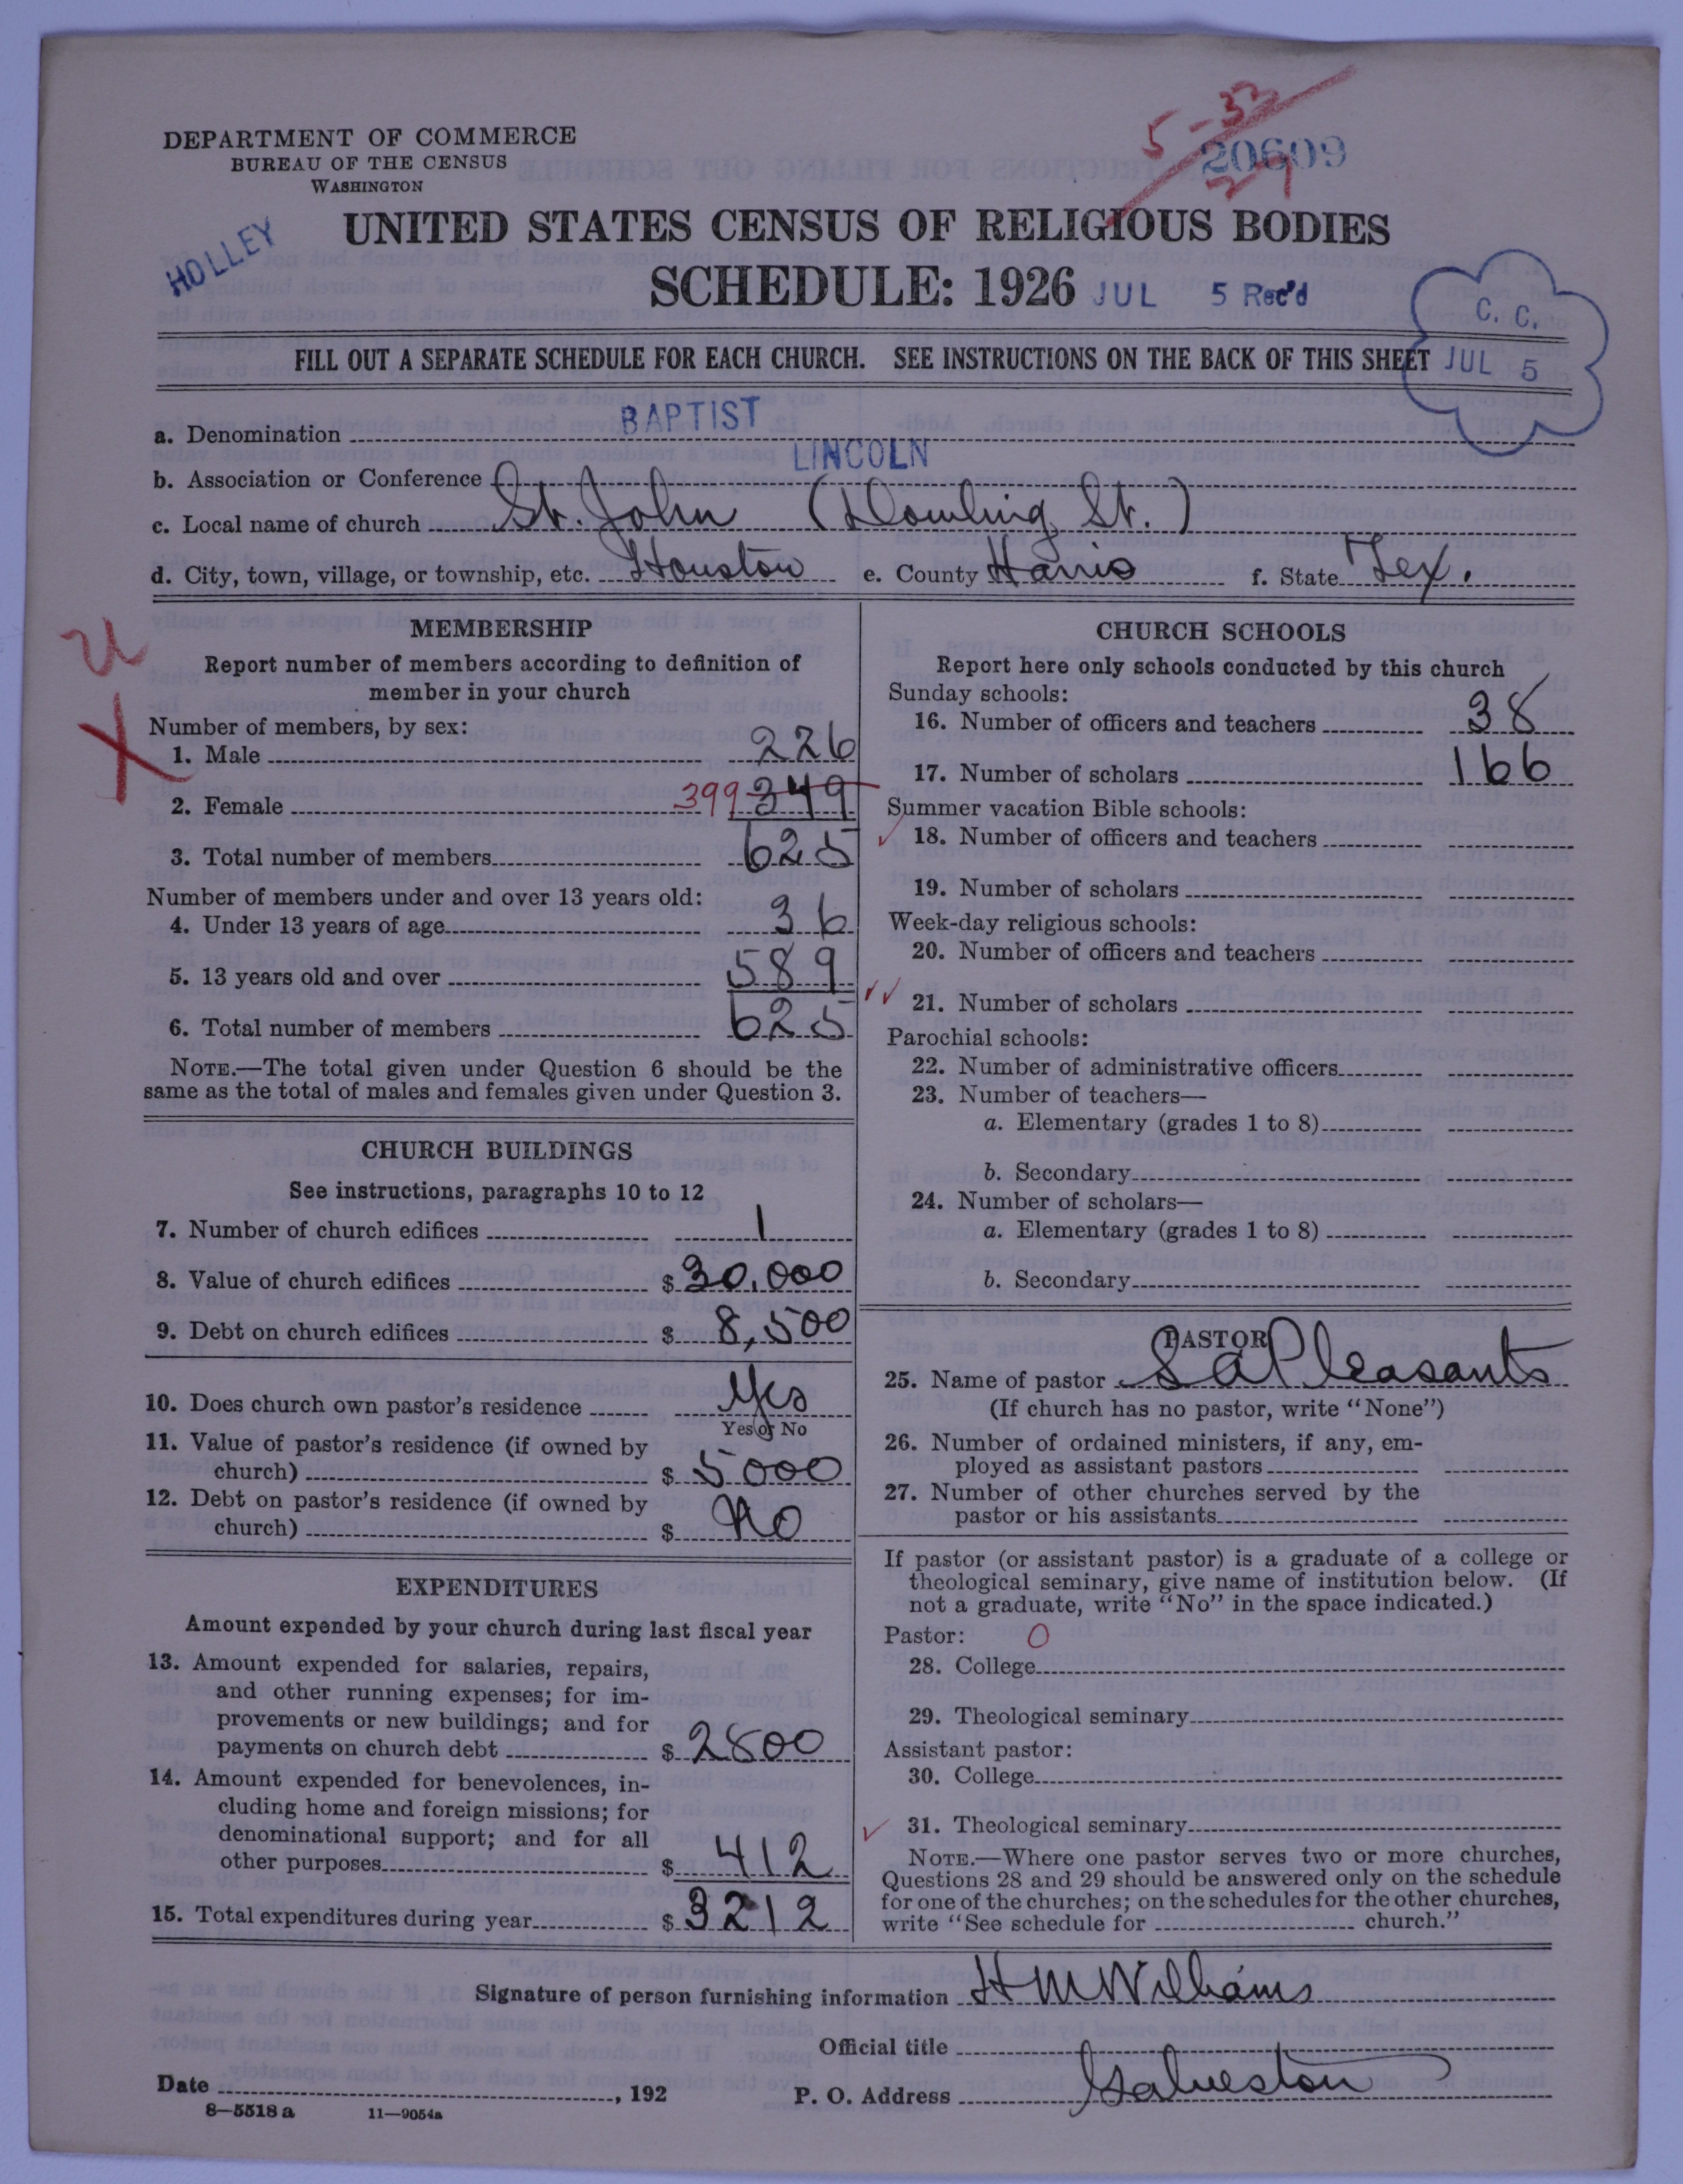 5-33
27
20609
DEPARTMENT OF COMMERCE
BUREAU OF THE CENSUS
WASHINGTON
HOLLEY
UNITED STATES CENSUS OF RELIGIOUS BODIES
SCHEDULE: 1926 JUL 5 Rec'd
C. C.
JUL 5
FILL OUT A SEPARATE SCHEDULE FOR EACH CHURCH. SEE INSTRUCTIONS ON THE BACK OF THIS SHEET
a. Denomination BAPTIST
b. Association or Conference LINCOLN
c. Local name of church St. John (Dowling St.)
d. City, town, village, or township, etc. Houston e. County Harris f. State Tex.
MEMBERSHIP
Report number of members according to definition of
member in your church
Number of members, by sex:
1. Male 226
2. Female 399 349
3. Total number of members 625
Number of members under and over 13 years old:
4. Under 13 years of age 36
5. 13 years old and over 589
6. Total number of members 625
NOTE.—The total given under Question 6 should be the
same as the total of males and females given under Question 3.
CHURCH BUILDINGS
See instructions, paragraphs 10 to 12
7. Number of church edifices 1
8. Value of church edifices $ 30,000
9. Debt on church edifices $ 8,500
10. Does church own pastor's residence Yes
Yes or No
11. Value of pastor's residence (if owned by
church) $ 5000
12. Debt on pastor's residence (if owned by
church) $ No
EXPENDITURES
Amount expended by your church during last fiscal year
13. Amount expended for salaries, repairs,
and other running expenses; for im-
provements or new buildings; and for
payments on church debt $ 2800
14. Amount expended for benevolences, in-
cluding home and foreign missions; for
denominational support; and for all
other purposes $ 412
15. Total expenditures during year $ 3212
CHURCH SCHOOLS
Report here only schools conducted by this church
Sunday schools:
16. Number of officers and teachers 38
17. Number of scholars 166
Summer vacation Bible schools:
18. Number of officers and teachers
19. Number of scholars
Week-day religious schools:
20. Number of officers and teachers
21. Number of scholars
Parochial schools:
22. Number of administrative officers
23. Number of teachers—
a. Elementary (grades 1 to 8)
b. Secondary
24. Number of scholars—
a. Elementary (grades 1 to 8)
b. Secondary
PASTOR
25. Name of pastor S A Pleasants
(If church has no pastor, write "None")
26. Number of ordained ministers, if any, em-
ployed as assistant pastors
27. Number of other churches served by the
pastor or his assistants
If pastor (or assistant pastor) is a graduate of a college or
theological seminary, give name of institution below. (If
not a graduate, write "No" in the space indicated.)
Pastor: 0
28. College
29. Theological seminary
Assistant pastor:
30. College
31. Theological seminary
NOTE.—Where one pastor serves two or more churches,
Questions 28 and 29 should be answered only on the schedule
for one of the churches; on the schedules for the other churches,
write "See schedule for church."
Signature of person furnishing information H M Williams
Official title
Date , 192 P. O. Address Galveston
8—5518 a 11—9054a